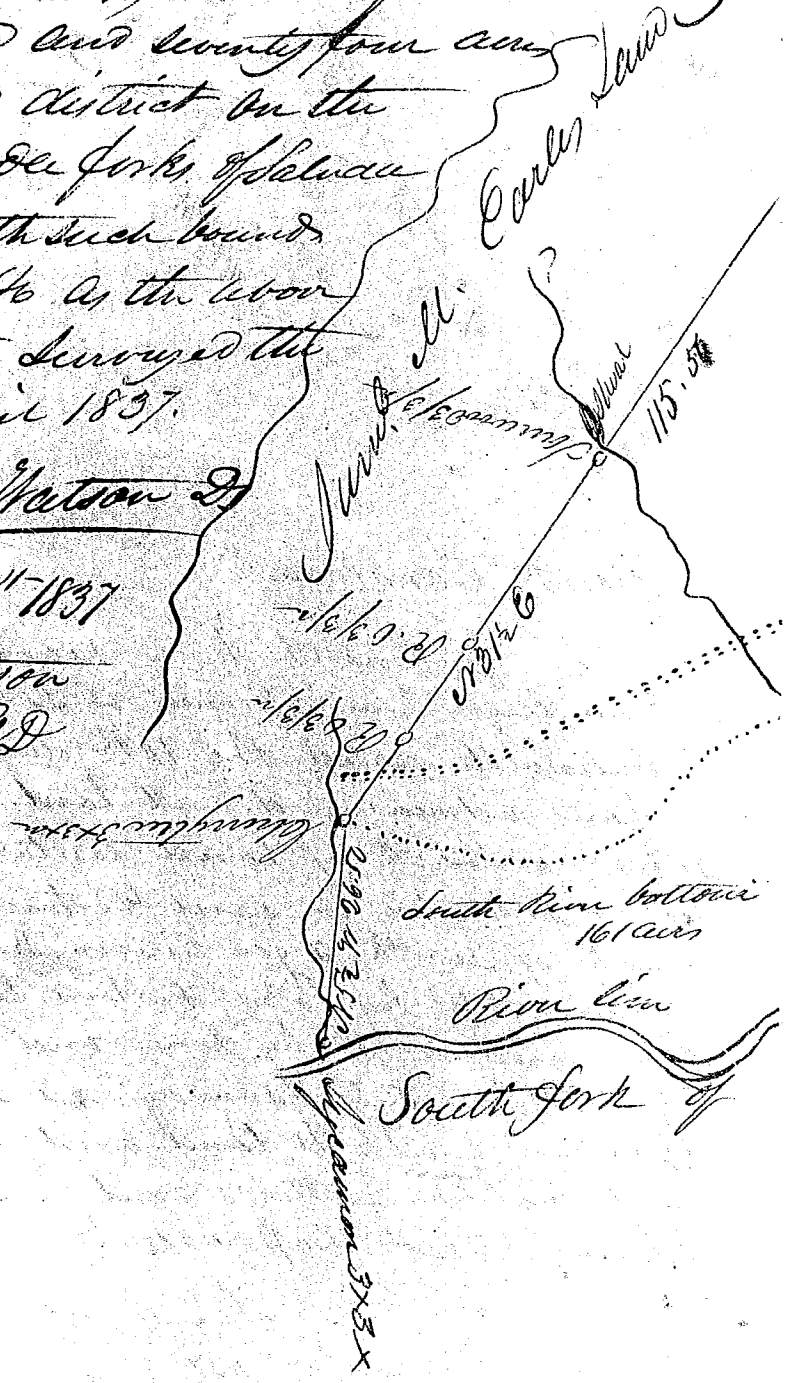 and seventy four acres
district on the
forks of Saluda
th such bounds
as the above
surveyed the
il 1837.
Watson D.
1837
on
James M. Earles Land
115.50
N31½ E
R.O 3/3/n
R.O 3/3/n
South River bottom
161 acres
River line
South fork of
Sycamore 3x3x